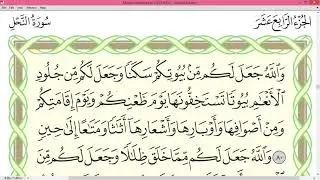 سُورَةُ النَّحْلِ
الجُزْءُ الرَّابِعَ عَشَرَ
وَاللَّهُ جَعَلَ لَكُم مِّنۢ بُيُوتِكُمْ سَكَنًا وَجَعَلَ لَكُم مِّن جُلُودِ
الْأَنْعَٰمِ بُيُوتًا تَسْتَخِفُّونَهَا يَوْمَ ظَعْنِكُمْ وَيَوْمَ إِقَامَتِكُمْ
وَمِنْ أَصْوَافِهَا وَأَوْبَارِهَا وَأَشْعَارِهَا أَثَٰثًا وَمَتَٰعًا إِلَىٰ حِينٍ
٨٠ وَاللَّهُ جَعَلَ لَكُم مِّمَّا خَلَقَ ظِلَٰلًا وَجَعَلَ لَكُم مِّنَ